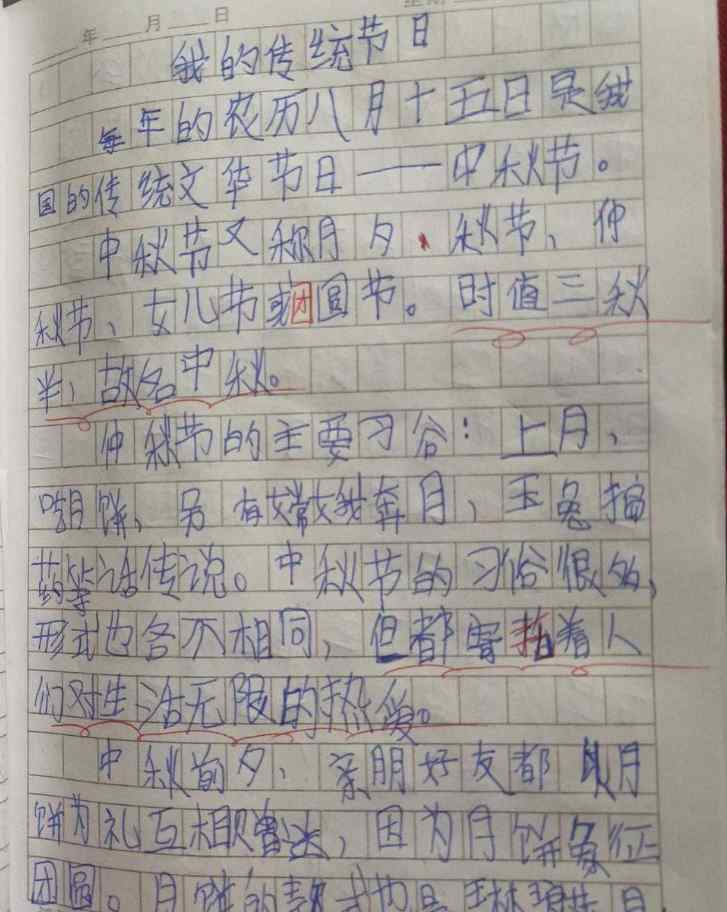 年 月 日
我的传统节日
每年的农历八月十五日是我
国的传统文华节日——中秋节。
中秋节又称月夕、秋节、仲
秋节、女儿节或团圆节。时值三秋
半,故名中秋。
仲秋节的主要习谷:上月、
吃月饼、另有嫦娥奔月、玉兔捣
药等活传说。中秋节的习俗很多,
形式也各不相同,但都寄托着人
们对生活无限的热爱。
中秋前夕、亲朋好友都以月
饼为礼互相赠送,因为月饼象征
团圆。月饼的款式也是琳琅满目